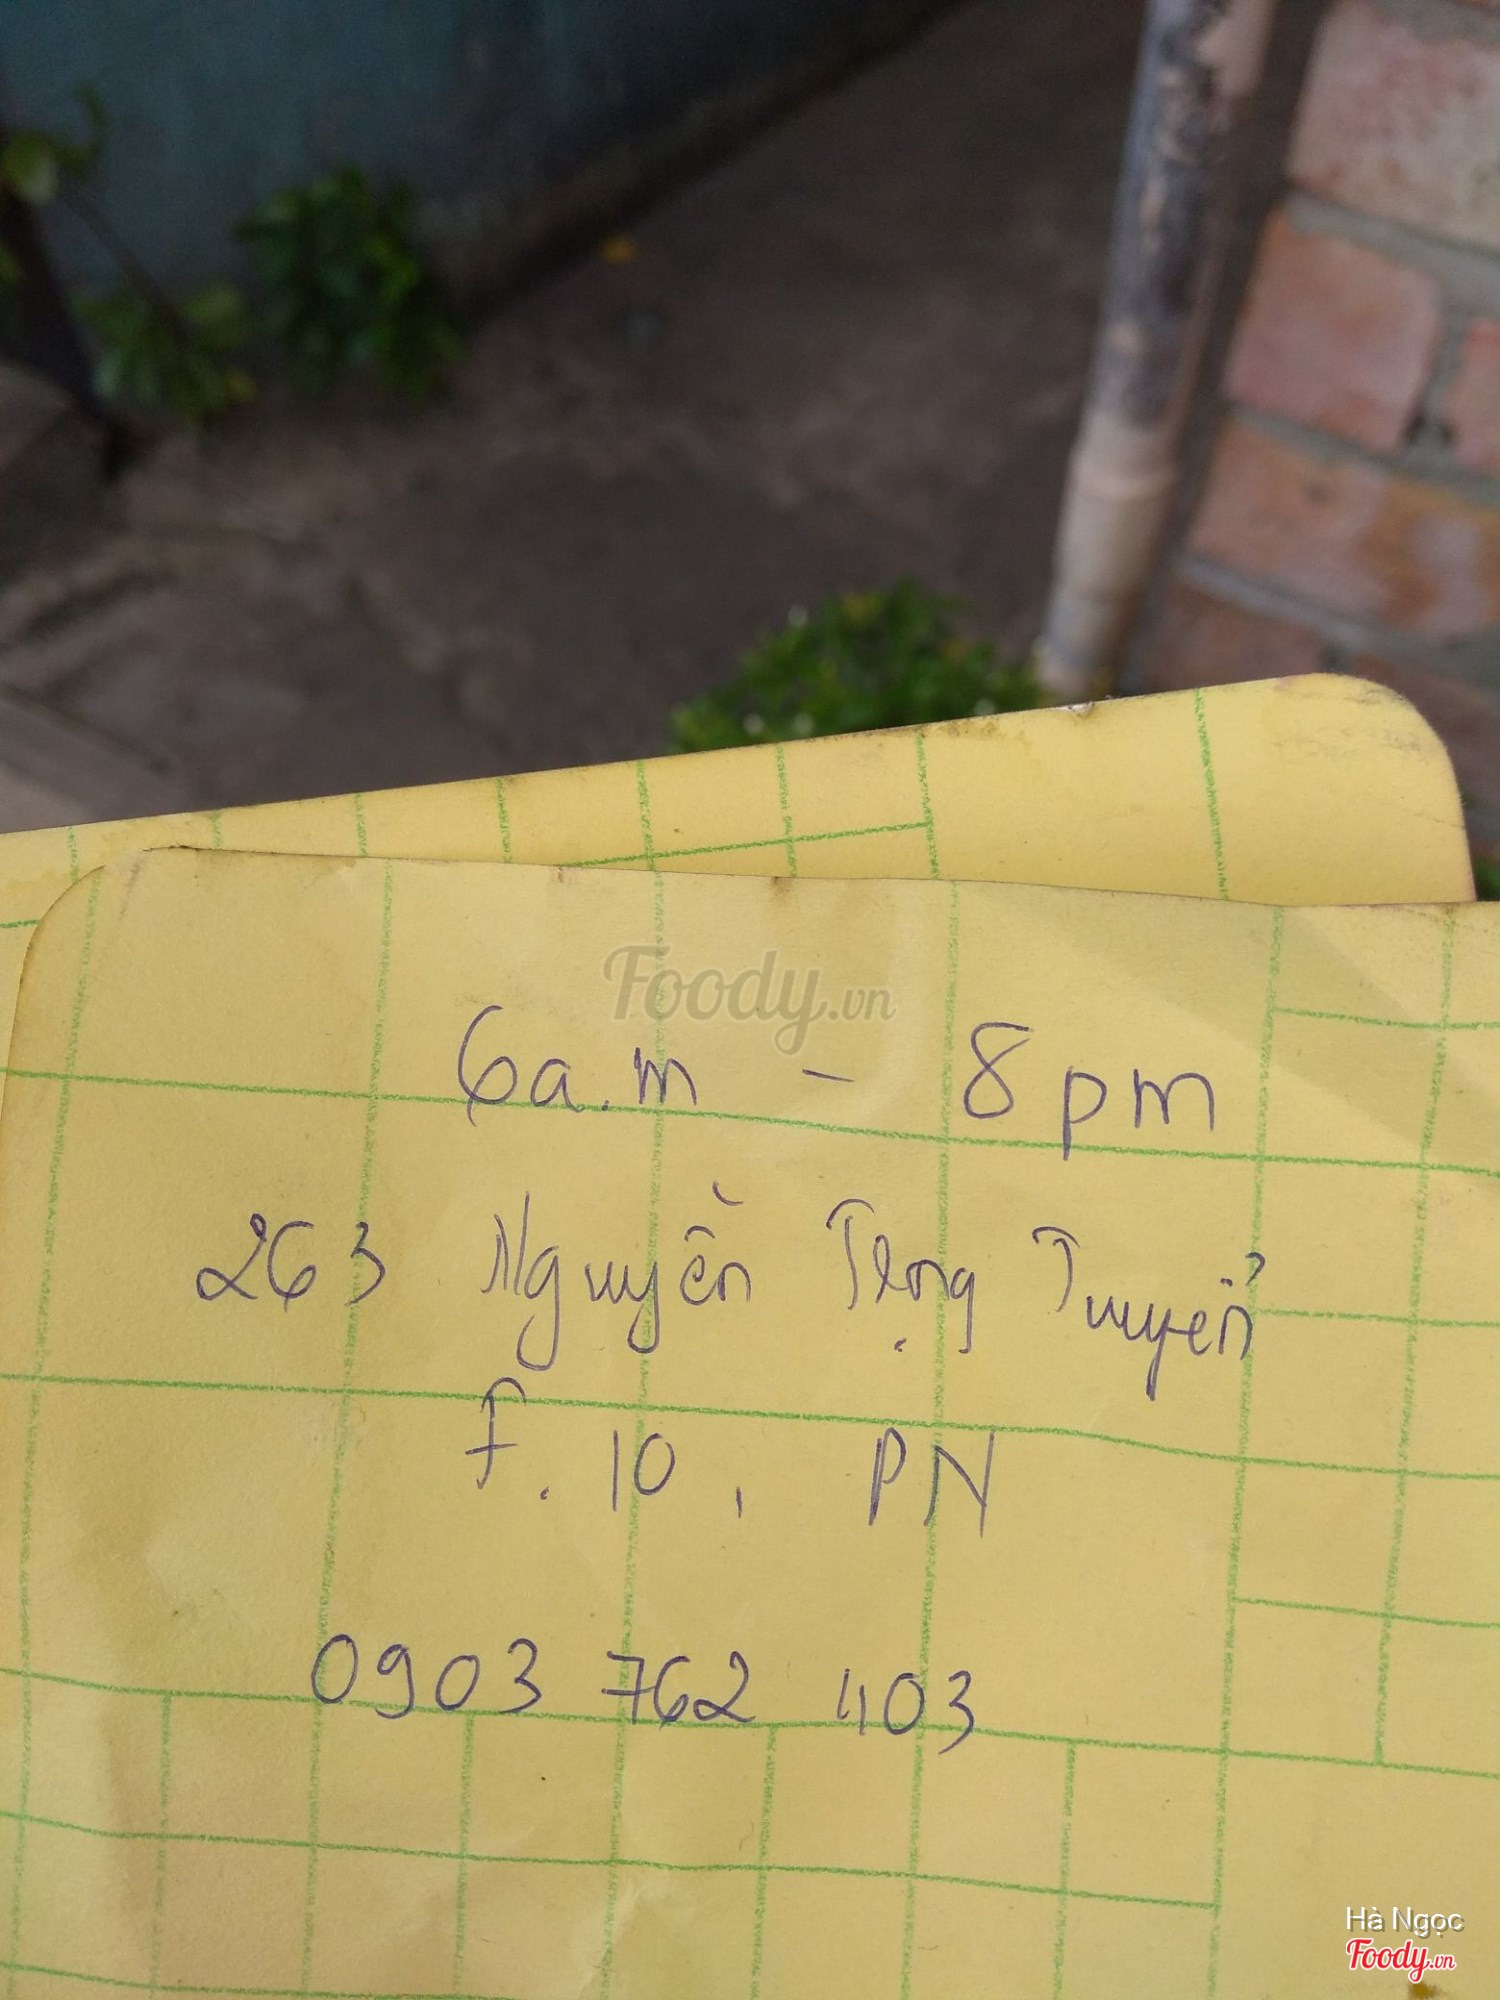 Foody.vn
6a.m - 8pm
263 Nguyền Trọng Tuyển
F. 10, PN
0903 762 403
Hà Ngọc
Foody.vn